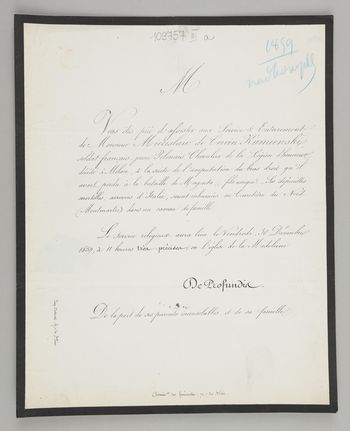 109757 III a
1859
M
Vous êtes prié d'assister aux Service & Enterrement
de Monsieur Miécislaw de Kamienski
soldat français, jeune Polonais, Chevalier de la Légion d'honneur,
décédé à Milan, à la suite de l'amputation du bras droit qu'il
avait perdu à la bataille de Magenta, fils unique. Ses dépouilles
mortelles, amenées d'Italie, seront inhumées au Cimetière du Nord
(Montmartre) dans un caveau de famille.
Le service religieux aura lieu le Vendredi, 30 Décembre
1859, à 11 heures très précises, en l'église de la Madeleine.
De Profundis.
De la part de ses parents inconsolables, et de sa famille.